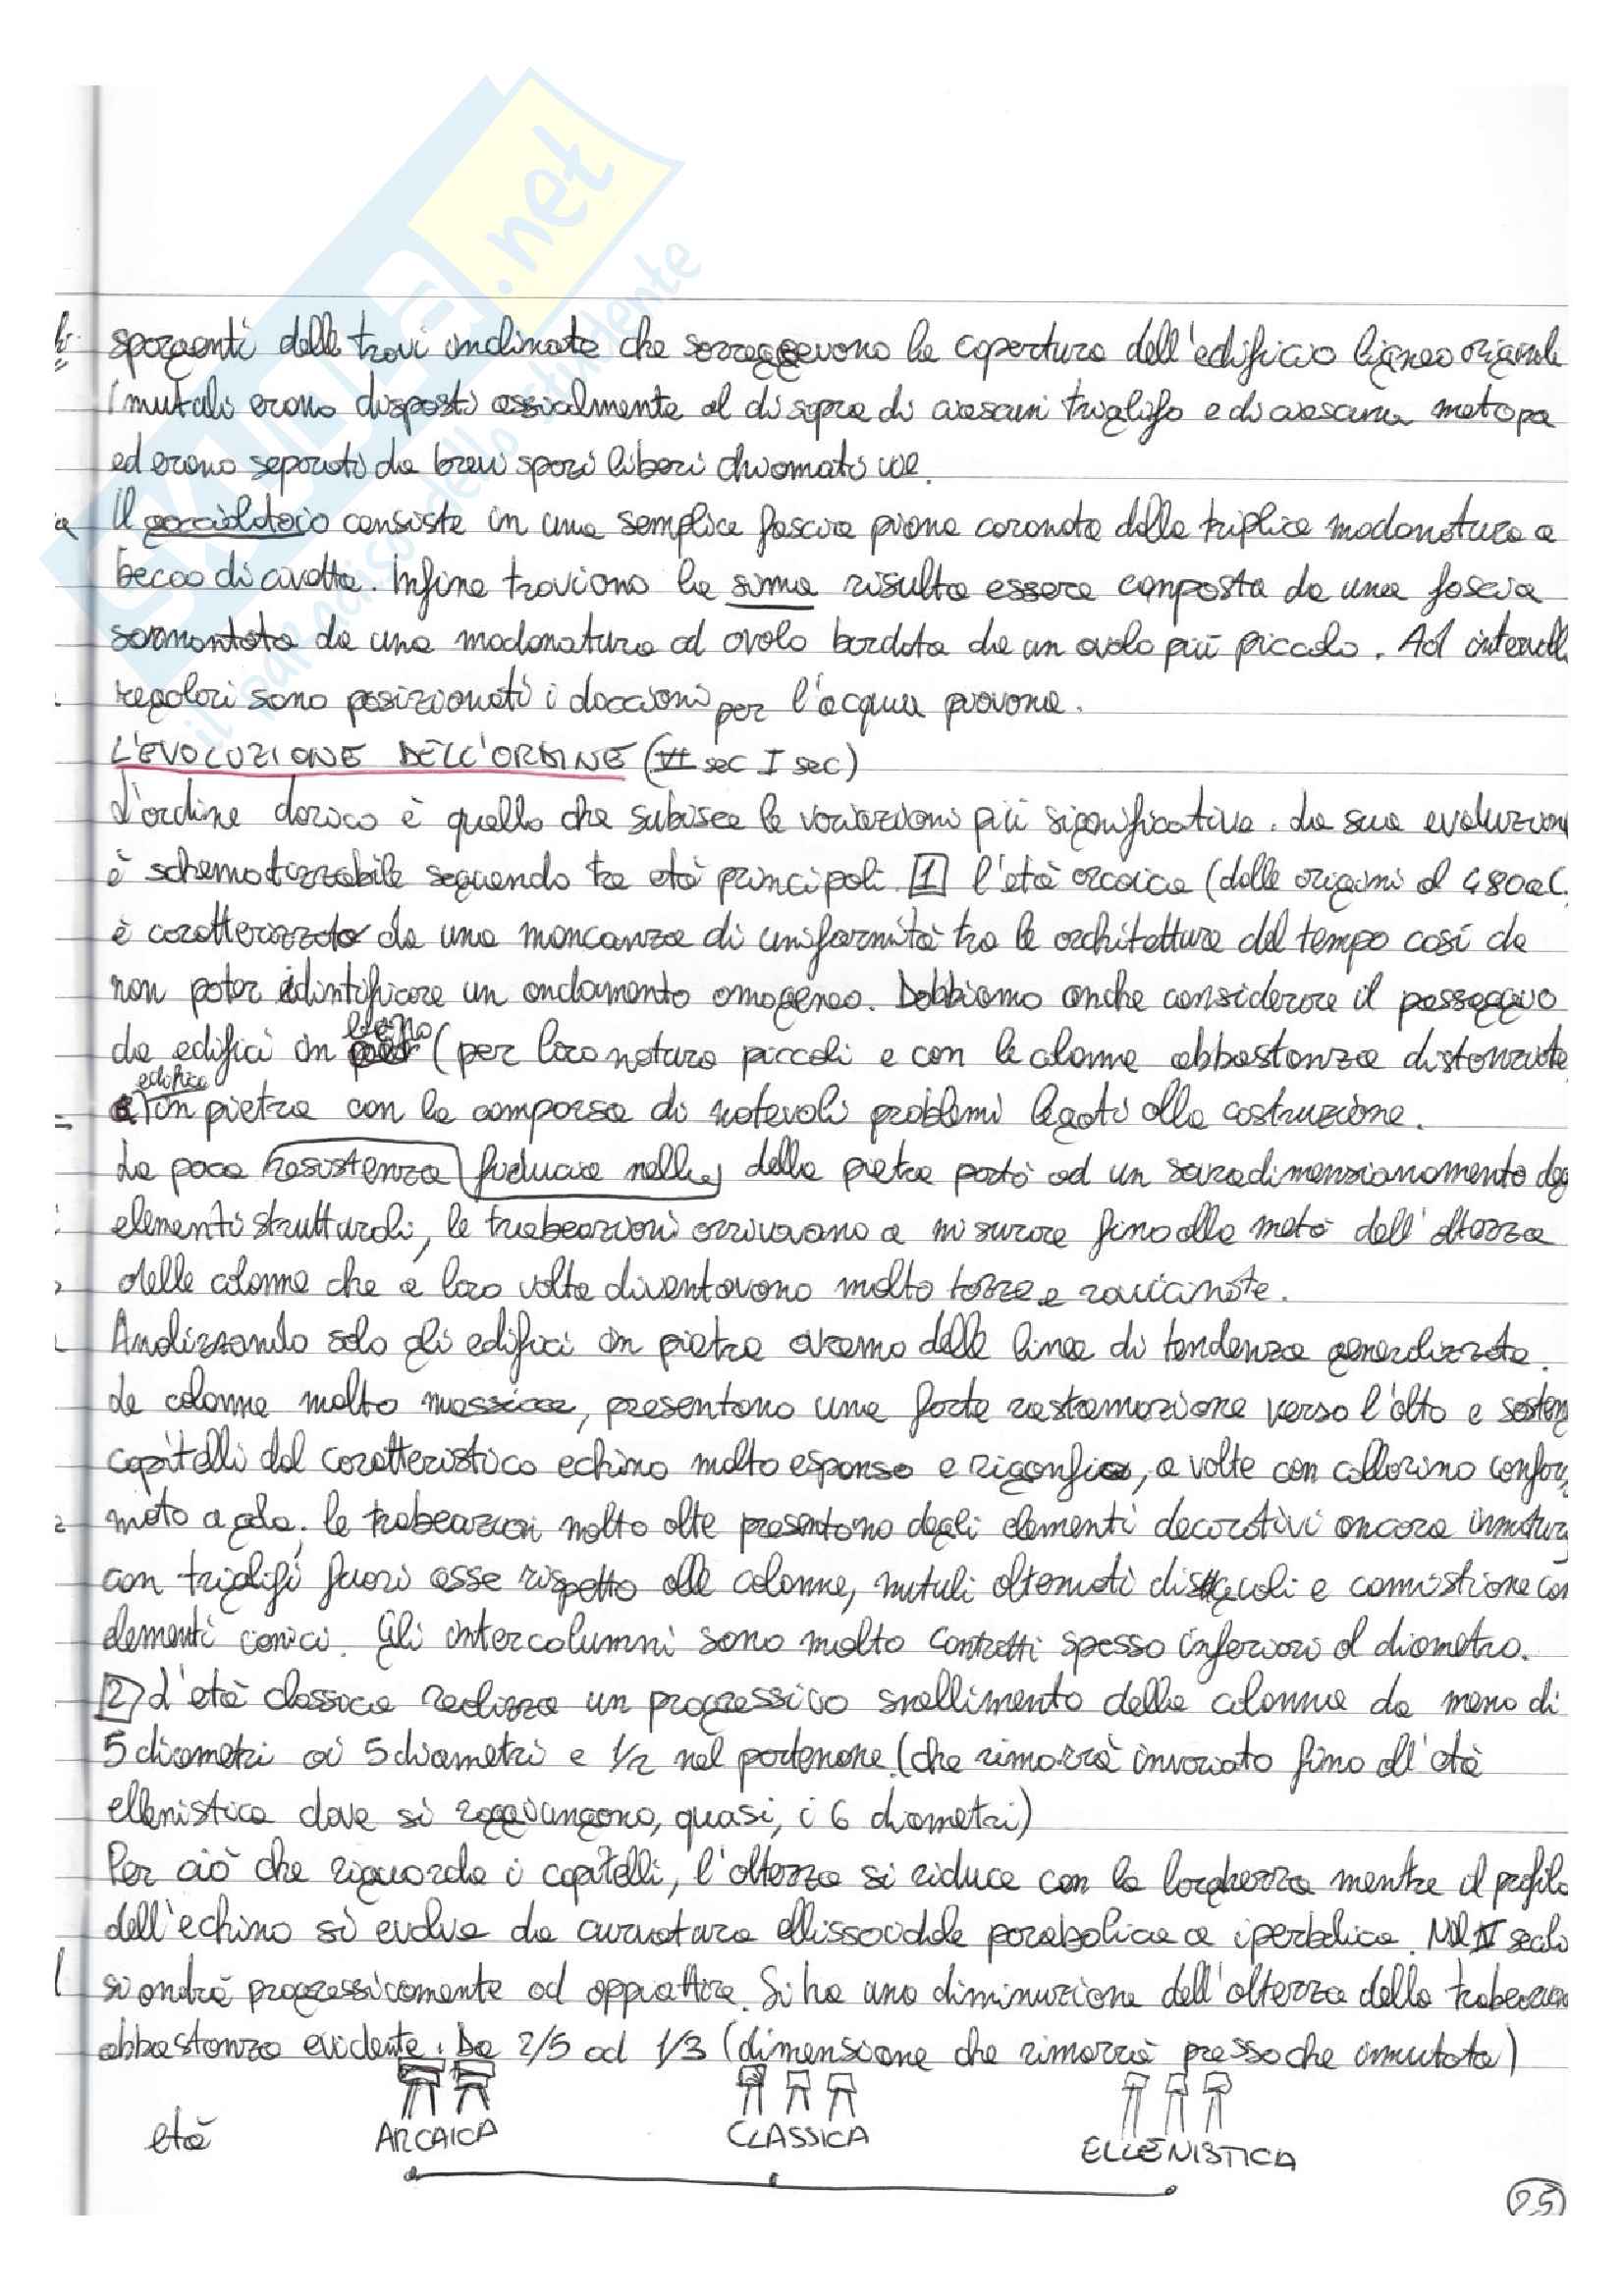 SKUOLA.net
il paradiso dello studente
sporgenti delle travi inclinate che sorreggevano la copertura dell'edificio ligneo originale
I mutuli erano disposti assialmente al di sopra di ciascun triglifo e di ciascuna metopa
ed erano separati da brevi spazi liberi chiamati vie.
Il gocciolatoio consiste in una semplice fascia piana coronata dalla triplice modanatura a
becco di civetta. Infine troviamo la sima risulta essere composta da una fascia
sormontata da una modanatura ad ovolo bordata da un ovolo più piccolo. Ad intervalli
regolari sono posizionati i doccioni per l'acqua piovana.
L'EVOLUZIONE DELL'ORDINE (VI sec I sec)
L'ordine dorico è quello che subisce le variazioni più significative. La sua evoluzione
è schematizzabile seguendo tre età principali. 1 l'età arcaica (dalle origini al 480 a.C.
è caratterizzato da una mancanza di uniformità tra le architetture del tempo così da
non poter identificare un andamento omogeneo. Dobbiamo anche considerare il passaggio
da edifici in legno (per loro natura piccoli e con le colonne abbastanza distanziate
a) edifici in pietra con la comparsa di notevoli problemi legati alla costruzione.
La poca resistenza fiducia nella della pietra portò ad un sovradimensionamento deg
elementi strutturali, le trabeazioni arrivavano a misurare fino alla metà dell'altezza
delle colonne che a loro volta diventavano molto tozze e ravvicinate.
Analizzando solo gli edifici in pietra avremo delle linee di tendenza generalizzate.
Le colonne molto massicce, presentano una forte rastremazione verso l'alto e sosten
capitelli dal caratteristico echino molto espanso e rigonfio, a volte con collarino confor
mato a gola; le trabeazioni molto alte presentano degli elementi decorativi ancora immaturi
con triglifi fuori asse rispetto alle colonne, mutuli alternati diseguali e comistione con
elementi ionici. Gli intercolumni sono molto contratti spesso inferiori al diametro.
2 L'età classica realizza un progressivo snellimento delle colonne da meno di
5 diametri ai 5 diametri e 1/2 nel partenone (che rimarrà invariato fino all'età
ellenistica dove si raggiungono, quasi, i 6 diametri)
Per ciò che riguarda i capitelli, l'altezza si riduce con la larghezza mentre il profilo
dell'echino si evolve da curvatura ellissoidale parabolica a iperbolica. Nel IV secolo
si andrà progressivamente ad appiattire. Si ha una diminuzione dell'altezza della trabeazione
abbastanza evidente. Da 2/5 ad 1/3 (dimensione che rimarrà pressoche immutata)
età ARCAICA CLASSICA ELLENISTICA
25